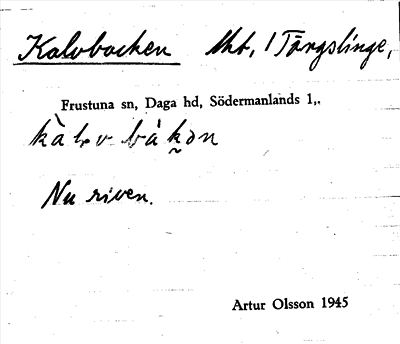 Kalvbacken lht, 1 Törgslinge,
Frustuna sn, Daga hd, Södermanlands l,.
Nu riven.
Artur Olsson 1945